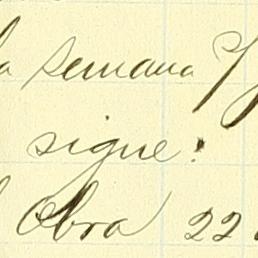 la semana
sigue:
Obra 22